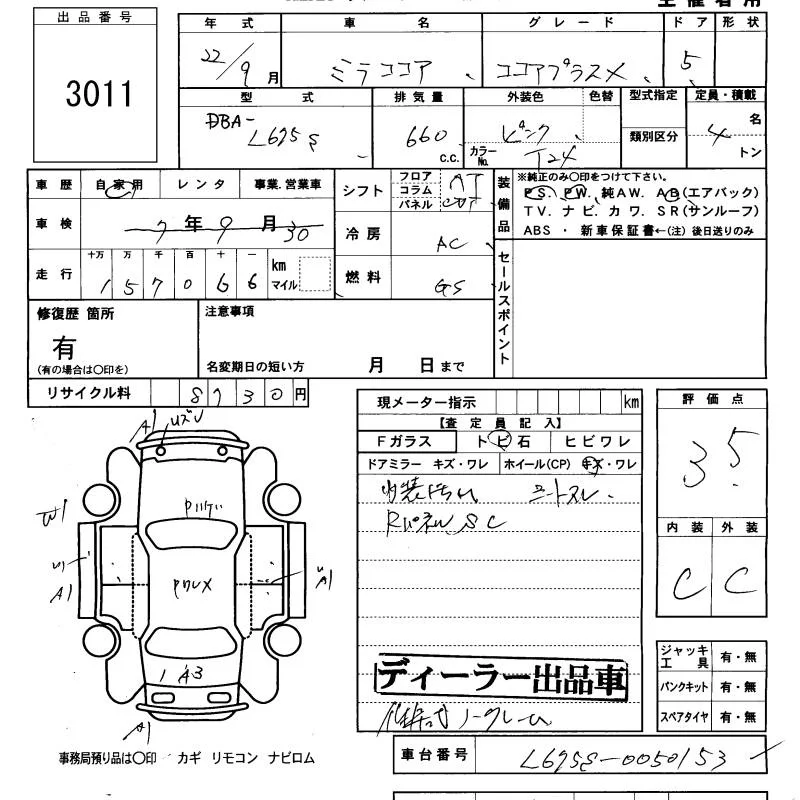 出品番号
3011
年式 車名 グレード ドア 形状
22/9月 ミラココア ココアプラスX 5
型式 排気量 外装色 色替 型式指定 定員・積載
DBA-L675S 660 C.C. ピンク 類別区分 4名
カラーNo. T24 トン
車歴 自家用 レンタ 事業.営業車 シフト フロア コラム パネル AT CVT
装備品 ※純正のみ〇印をつけて下さい。
PS. PW. 純AW. AB(エアバック)
TV. ナビ. カワ. SR(サンルーフ)
ABS ・ 新車保証書←(注) 後日送りのみ
車検 7年9月30 冷房 AC
走行 十万 万 千 百 十 一 km マイル
157066 燃料 GS
セールスポイント
修復歴 箇所 注意事項
有
(有の場合は〇印を) 名変期日の短い方 月 日まで
リサイクル料 8730円
現メーター指示 km
【査定員記入】
Fガラス トビ石 ヒビワレ
ドアミラー キズ・ワレ ホイール(CP) キズ・ワレ
内装 シートスレ
RパネルSC
評価点
3.5
内装 外装
C C
A1
W1
A1
A1
A3
A1
ディーラー出品車
ジャッキ工具 有・無
パンクキット 有・無
スペアタイヤ 有・無
事務局預り品は〇印 カギ リモコン ナビロム
車台番号 L675S-0050153